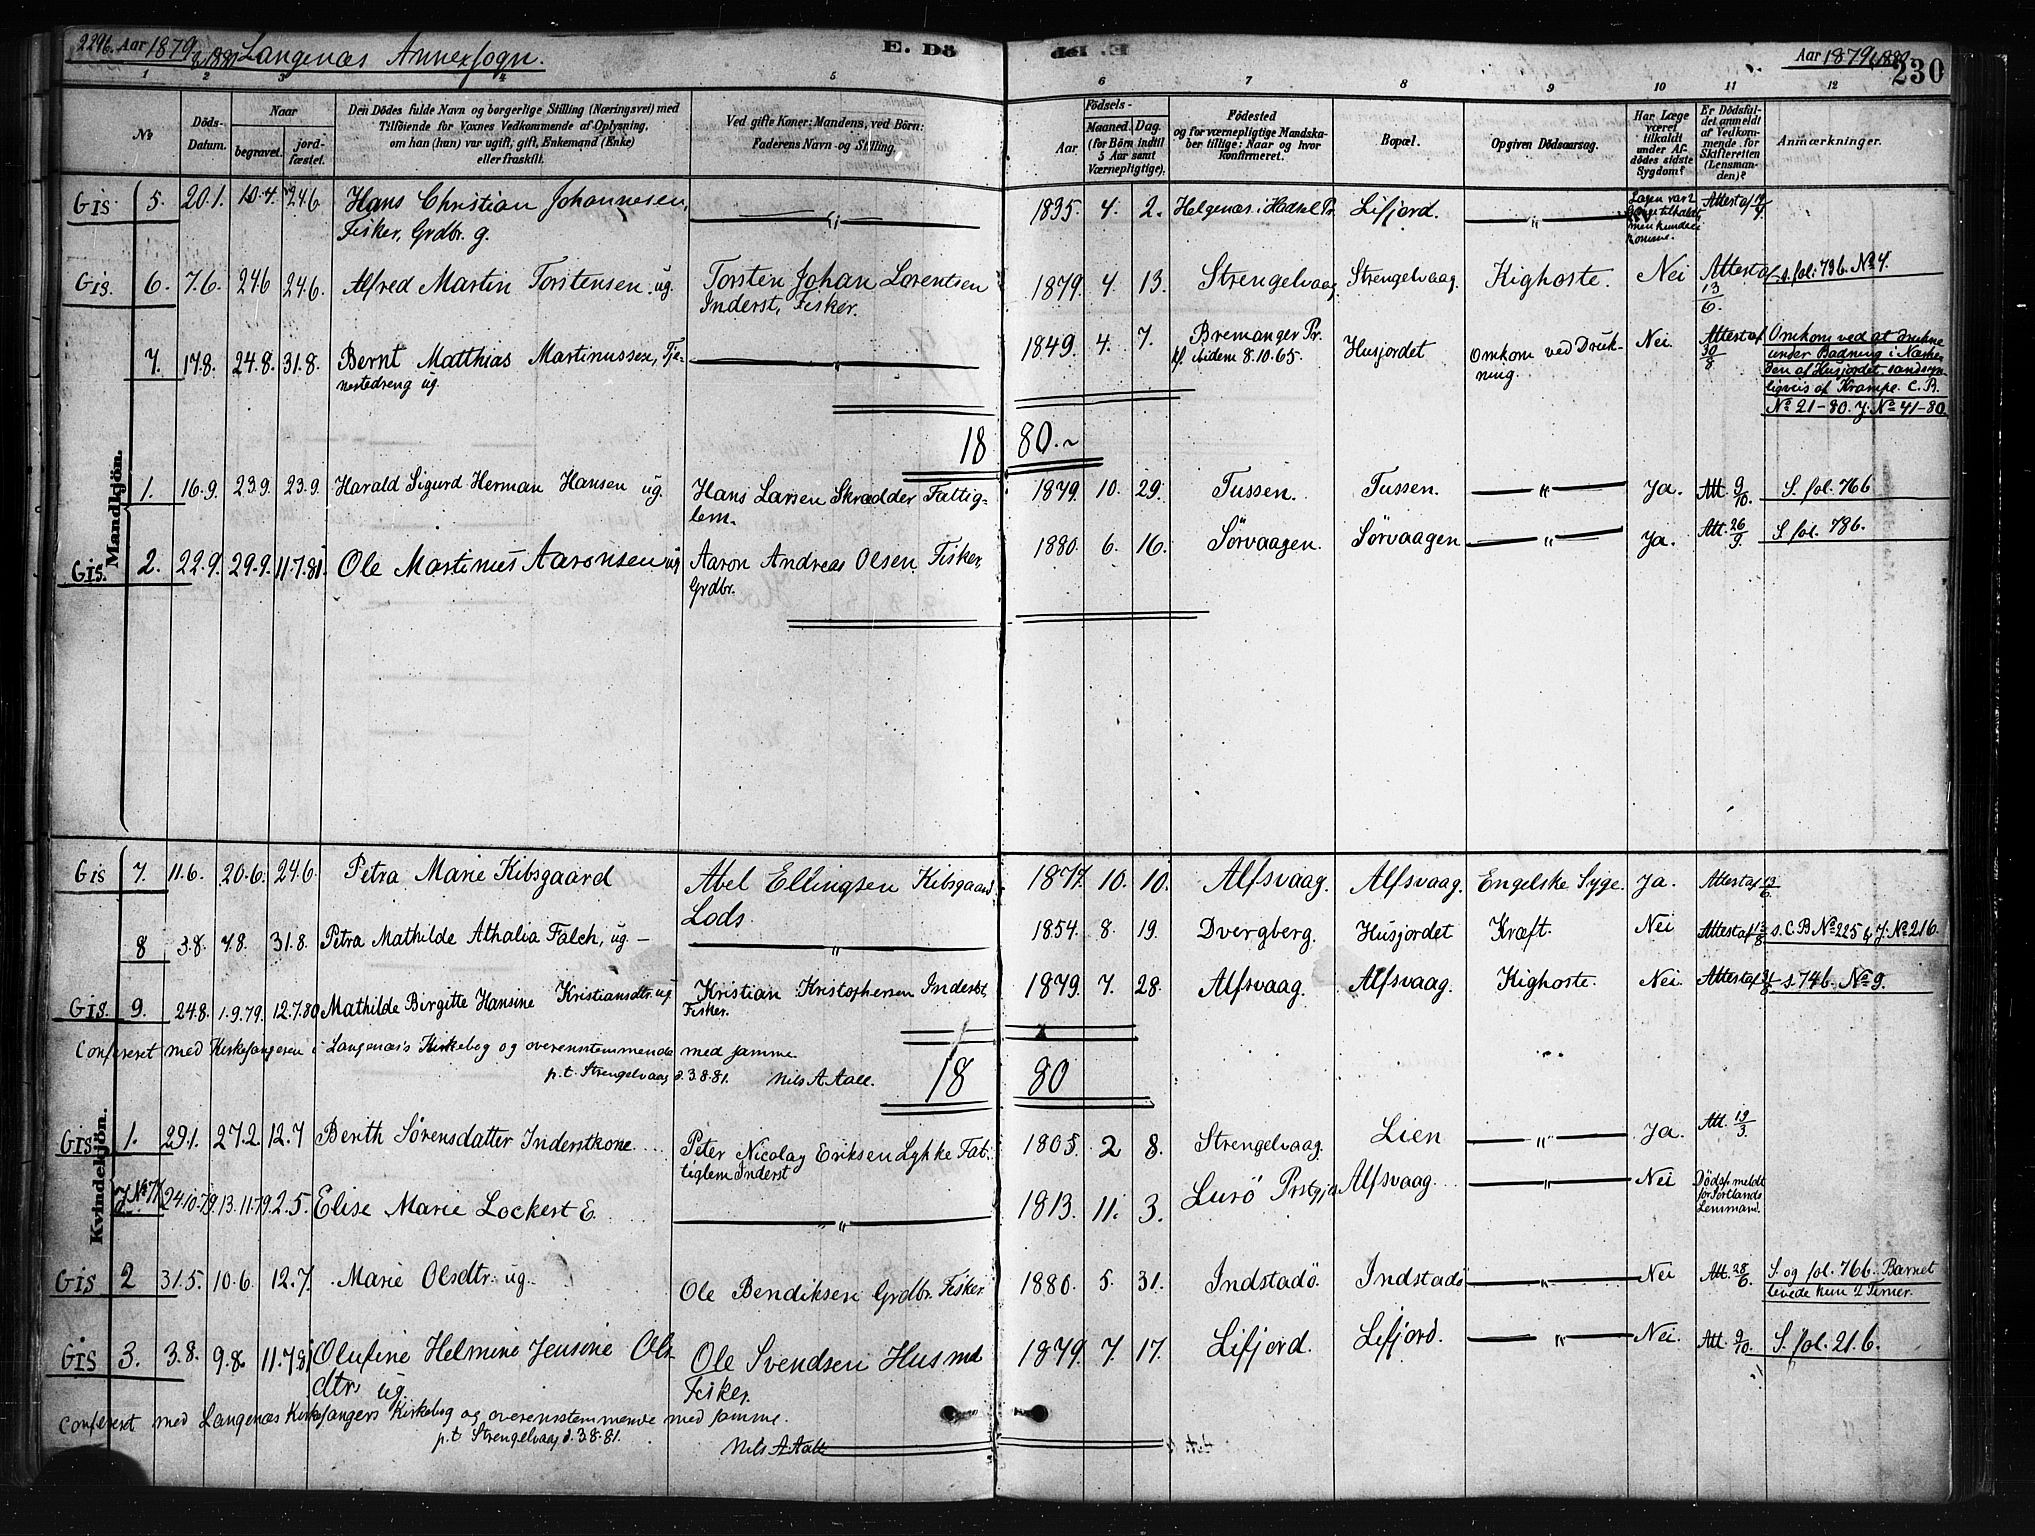 229b. Aar 1879 & 1880 Langenæs Annexsogn. E. Dö
del E. Aar 1879 & 1880 230
1 2 3 4 5 6 7 8 9 10 11 12
No
Döds-
Datum.
Naar
begravet.
jord-
fæstet.
Den Dödes fulde Navn og borgerlige Stilling (Næringsvei) med
Tilföiende for Voxnes Vedkommende af Oplysning,
om han (hun) var ugift, gift, Enkemand (Enke)
eller fraskilt.
Ved gifte Koner: Mandens, ved Börn:
Faderens Navn og Stilling.
Födsels-
Aar
Maaned. Dag.
(for Börn indtil
5 Aar samt
Værnepligtige).
Födested
og for værnepligtige Mandska-
ber tillige: Naar og hvor
konfirmeret.
Bopæl.
Opgiven Dödsaarsag.
Har Læge
været
tilkaldt
under Af-
dödes sidste
Sygdom?
Er Dödsfal-
det anmeldt
af Vedkom-
mende for
Skifteretten
(Lensman-
den)?
Anmærkninger.
Mandkjön.
Gis 5. 20.1. 10.4. 24.6 Hans Christian Johannesen, — „ — 1835. 4. 2. Helgenæs i Hadsel Pr. Lifjord. — „ — Attest af
Fisker, Grdbr. g.
Gis. 6. 7.6. 24.6 24.6. Alfred Martin Torstensen. ug. Torsten Johan Lorentsen 1879. 4. 13. Strengelvaag Strengelvaag. Kighoste. Nei Attest af 13/6. s. fol. 73b. No 4.
Inderst, Fisker.
7. 17.8. 24.8. 31.8. Bernt Matthias Martinussen, Tje- — „ — 1849. 4. 7. Bremanger Pr. Husjordet Omkom ved Druk- Nei Attest af 30/8 Omkom ved at drukne
nestedreng ug. kf. ibidem 8.10.65. ning. under Badning i Nærhe-
den af Husjordet, sandsyn-
ligvis af Krampe. C. B.
No 21-80. J. No 41-80
18 80.~
1. 16.9. 23.9. 23.9. Harald Sigurd Herman Hansen ug. Hans Larsen Skrædder, Fattig- 1879. 10. 29. Tussen. Tussen. — „ — Ja. Att. 9/10. S. fol. 76b
lem.
Gis. 2. 22.9. 29.9. 11.7.81. Ole Martinus Aaronsen ug Aaron Andreas Olsen Fisker, 1880. 6. 16. Sørvaagen. Sørvaagen — „ — Ja. Att. 26/9. S. fol. 78b.
Grdbr.
Kvindekjön.
Gis 7. 11.6. 20.6. 24.6. Petra Marie Kibsgaard Abel Ellingsen Kibsgaard 1877. 10. 10. Alfsvaag. Alfsvaag. Engelske Syge. Ja. Attest af 13/6
Lods.
8 3.8. 7.8. 31.8. Petra Mathilde Athalia Falch, ug — — „ — 1854. 8. 19. Dvergberg. Husjordet Kræft. Nei Attest af 13/8 s. C. B No 225 & J. No 216.
Gis. 9. 24.8. 1.9.79. 12.7.80 Mathilde Birgitte Hansine Kristiansdtr. ug Kristian Kristophersen Inderst, 1879. 7. 28. Alfsvaag. Alfsvaag. Kighoste. Nei. Attest af s. 74b. No 9.
Fisker.
Confereret med Kirkesangeren i Langenæs's Kirkebog og overensstemmende med samme
p.t. Strengelvaag d. 3.8.81. Nils A Aall. 18 80
Gis 1. 29.1. 27.2. 12.7 Berith Sørensdatter Inderstkone Peter Nicolay Eriksen Lykke Fat- 1805. 2 8. Strengelvaag. Lien — „ — Ja. Att. 19/3.
tiglem Inderst
J. No 77 24.10.79. 13.11.79. 2.5. Elise Marie Lockert E. — „ — 1813. 11. 3. Lurö Prstgjd Alfsvaag. — „ — Nei Dödsf. meldt
for Sortlands
Lensmand.
Gis 2 31.5. 10.6. 12.7. Marie Olsdtr. ug. Ole Bendiksen Grdbr. Fisker 1880. 5. 31. Indstadö. Indstadö — „ — Nei Att. 28/6. S. og fol. 76b. Barnet
levede kun 2 Timer.
Gis 3. 3.8. 9.8. 11.7.81 Olufine Helmine Jensine Ols- Ole Svendsen Husmd 1879. 7. 17. Lifjord. Lifjord. — „ — Nei. Att. 9/10. S. fol. 21.b.
dtr. ug. Fisker.
Confereret med Langenæs Kirkesangers Kirkebog og overensstemmende med samme.
p.t. Strengelvaag d. 3.8.81. Nils A Aall